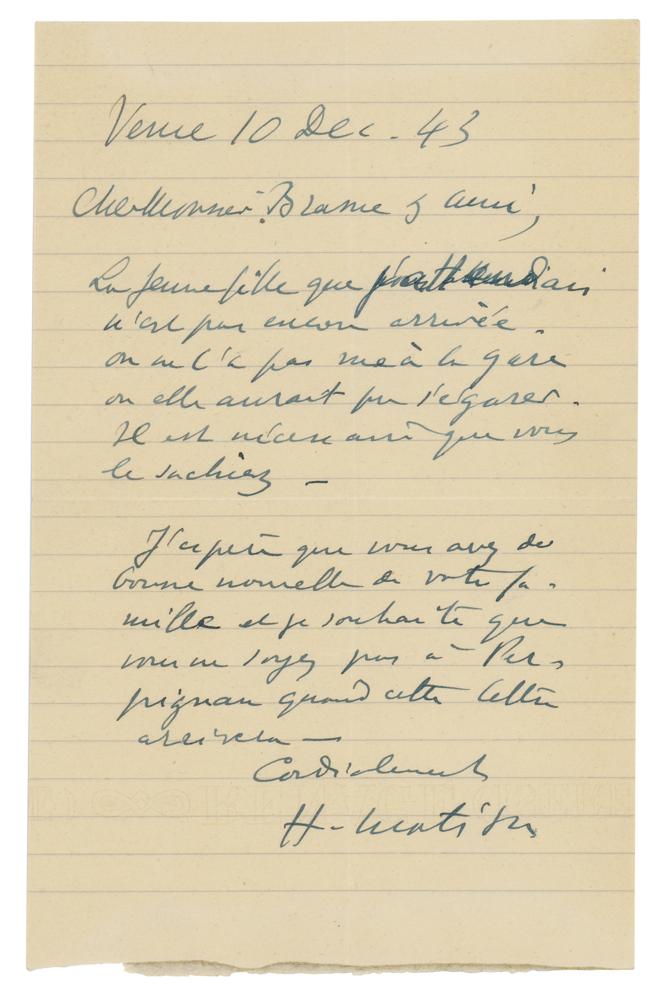 Vence 10 Dec. 43
Cher Monsieur et ami,
La jeune fille que j'attendais
n'est pas encore arrivée.
on ne l'a pas vue à la gare
où elle aurait pu s'égarer.
Il est nécessaire que vous
le sachiez –
J'espère que vous avez de
bonne nouvelle de votre fa-
mille et je souhaite que
vous ne soyez pas à Per-
pignan quand cette lettre
arrivera –
Cordialement
H. Matisse